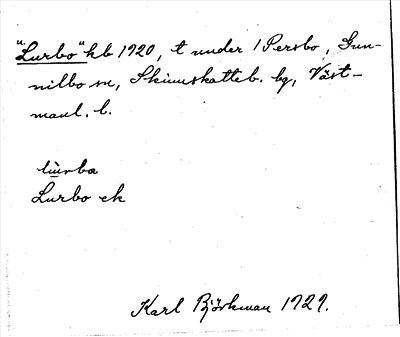 "Lurbo" kb 1920, t under 1 Persbo, Gun-
nilbo sn, Skinnskatteb. bg, Väst-
manl. l.
lu̇rba
Lurbo ek
Karl Björkman 1929.